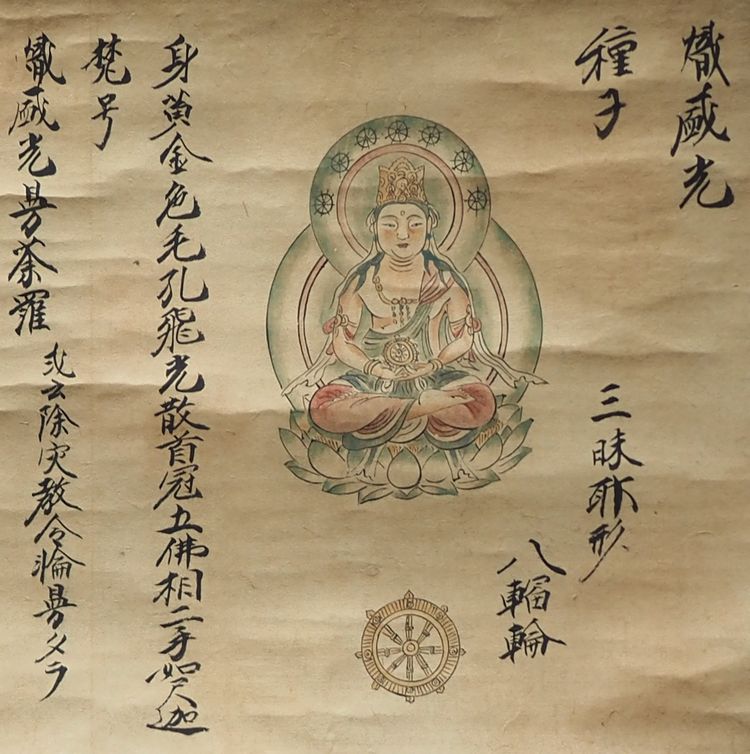 熾盛光
種子
三昧耶形
八輻輪
身黄金色毛孔飛光散首冠五佛相二手如尺迦
梵号
熾盛光曼荼羅
或云除災教令輪曼タラ